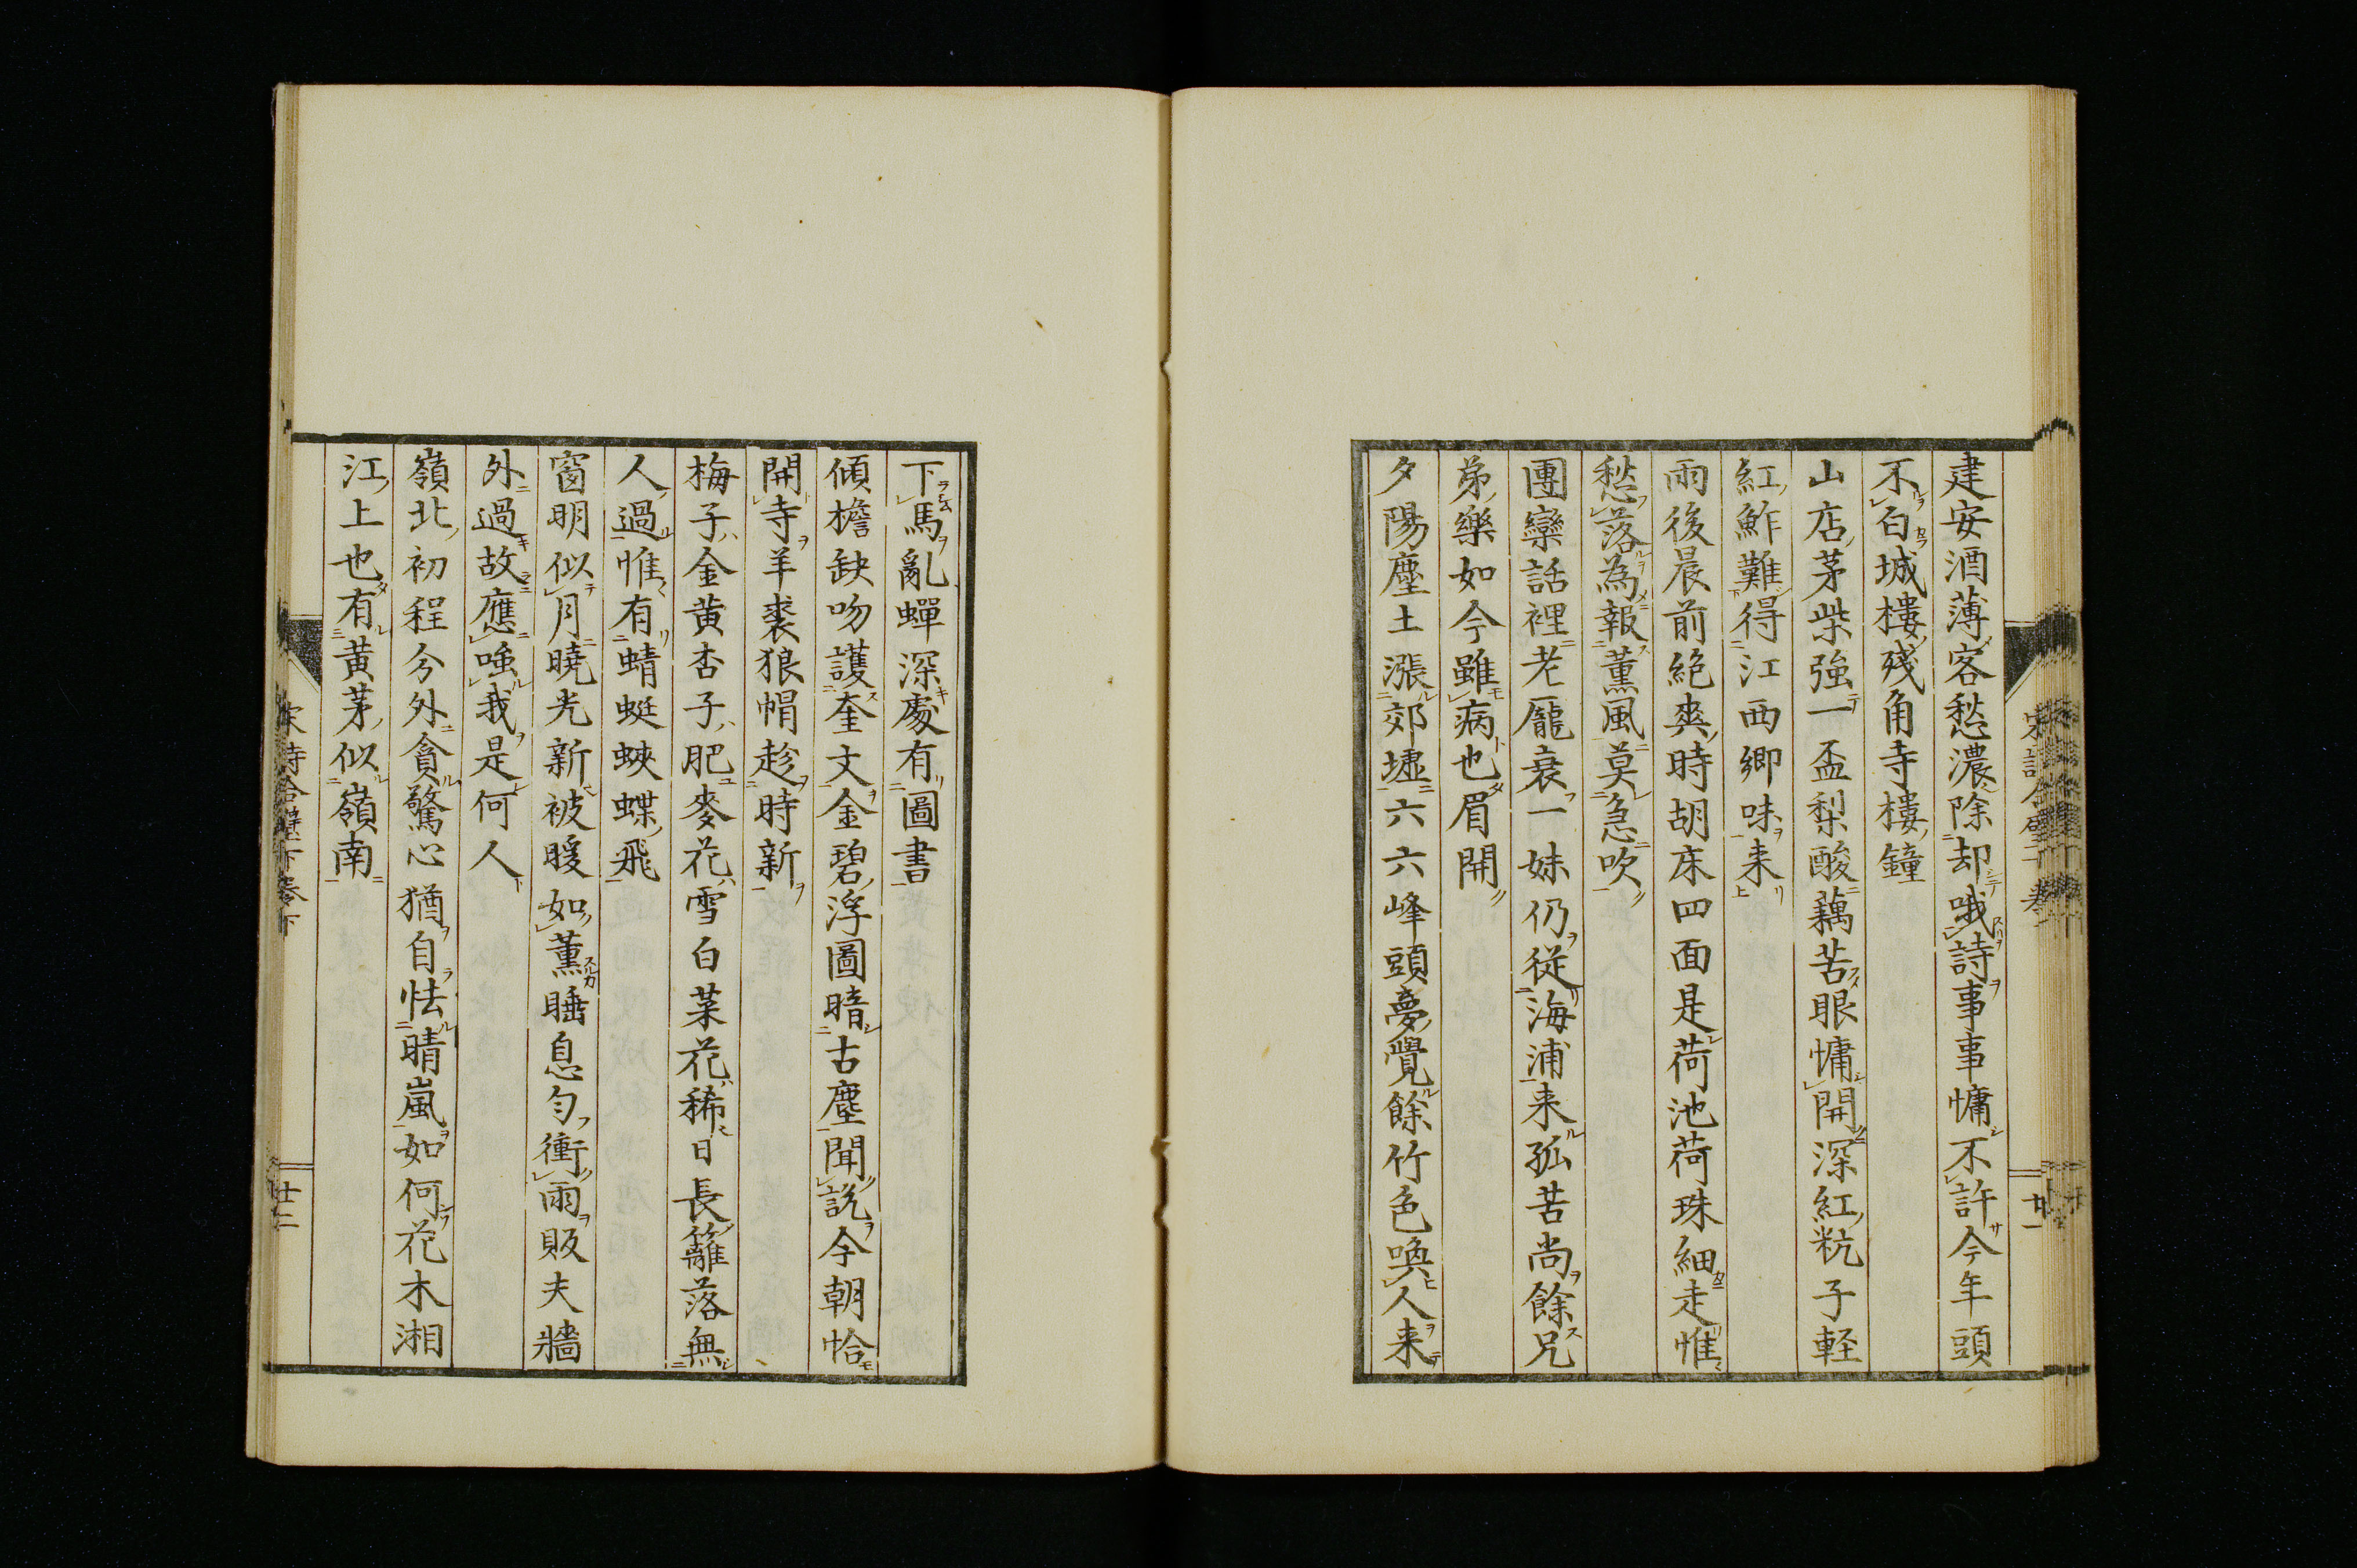 建安酒薄客愁濃除却哦詩事事慵不許今年頭
不白城樓殘角寺樓鐘
山店茅柴強一盃梨酸藕苦眼慵開深紅粇子軽
紅鮓難得江西郷味来
雨後晨前絶爽時胡床四面是荷池荷珠細走惟
愁落為報薫風莫急吹
團欒話裡老厖衰一妹仍從海浦来孤苦尚餘兄
弟樂如今雖病也眉開
夕陽塵土漲郊墟六六峰頭夢覺餘竹色喚人来
下馬亂蟬深處有圖書
傾檐缺吻護奎文金碧浮圖暗古塵聞説今朝恰
開寺羊裘狼帽趁時新
梅子金黄杏子肥麥花雪白菜花稀日長籬落無
人過惟有蜻蜓蛺蝶飛
窗明似月曉光新被暖如薫睡息匀衝雨販夫牆
外過故應嗤我是何人
嶺北初程分外貪驚心猶自怯晴嵐如何花木湘
江上也有黄茅似嶺南